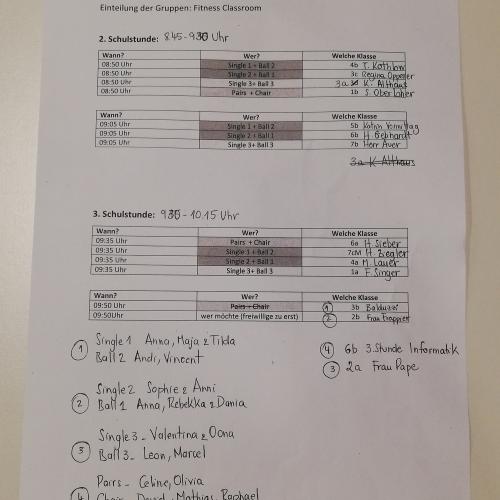 Einteilung der Gruppen: Fitness Classroom
2. Schulstunde: 845-930 Uhr
Wann? Wer? Welche Klasse
08:50 Uhr Single 1 + Ball 2 4b T. Kothlow
08:50 Uhr Single 2 + Ball 1 3c Regina Oppeler
08:50 Uhr Single 3+ Ball 3 3a K. Althaus
08:50 Uhr Pairs + Chair 1b S. Oberloher
Wann? Wer? Welche Klasse
09:05 Uhr Single 1 + Ball 2 5b Katrin
09:05 Uhr Single 2 + Ball 1 6b H. Gebhardt
09:05 Uhr Single 3+ Ball 3 7b Herr Auer
3a K Althaus
3. Schulstunde: 930-10.15 Uhr
Wann? Wer? Welche Klasse
09:35 Uhr Pairs + Chair 6a H. Sieber
09:35 Uhr Single 1 + Ball 2 7cM H. Ziegler
09:35 Uhr Single 2 + Ball 1 4a M. Lauer
09:35 Uhr Single 3+ Ball 3 1a F. Singer
Wann? Wer? Welche Klasse
09:50 Uhr Pairs + Chair 1 3b Balduzzi
09:50Uhr wer möchte (freiwillige zu erst) 2 2b Frau
1 Single 1 Anna, Maja & Tilda
Ball 2 Andi, Vincent
4 6b 3.Stunde Informatik
3 2a Frau Pape
2 Single 2 Sophie & Anni
Ball 1 Anna, Rebekka & Dania
3 Single 3 - Valentina & Oona
Ball 3 - Leon, Marcel
4 Pairs - Celine, Olivia
Chair Mathias, Raphael